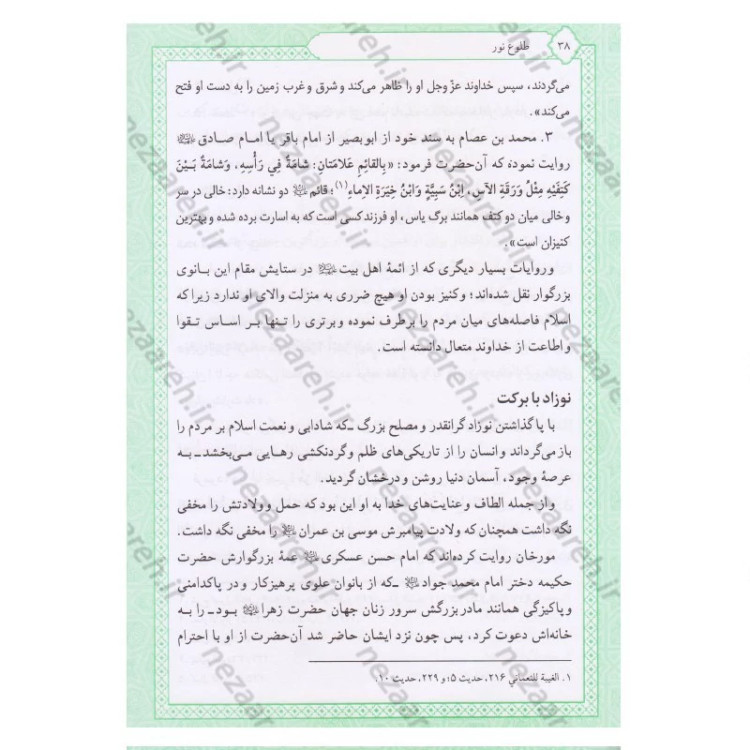 ۳۸
طلوع نور
می‌گردند، سپس خداوند عزّوجل او را ظاهر می‌کند و شرق و غرب زمین را به دست او فتح
می‌کند».
۳. محمد بن عصام به سند خود از ابوبصیر از امام باقر یا امام صادق
روایت نموده که آن‌حضرت فرمود: «بِالقائِمِ عَلامَتانِ: شامَةٌ فِي رَأْسِهِ، وَشامَةٌ بَيْنَ
كَتِفَيْهِ مِثْلُ وَرَقَةِ الآسِ، اِبْنُ سَبِيَّةٍ وَابْنُ خِيَرَةِ الإماءِ(۱)؛ قائم دو نشانه دارد: خالی در سر
و خالی میان دو کتف همانند برگ یاس، او فرزند کسی است که به اسارت برده شده و بهترین
کنیزان است».
و روایات بسیار دیگری که از ائمهٔ اهل بیت در ستایش مقام این بانوی
بزرگوار نقل شده‌اند؛ و کنیز بودن او هیچ ضرری به منزلت والای او ندارد زیرا که
اسلام فاصله‌های میان مردم را برطرف نموده و برتری را تنها بر اساس تقوا
و اطاعت از خداوند متعال دانسته است.
نوزاد با برکت
با پا گذاشتن نوزاد گرانقدر و مصلح بزرگ ـ که شادابی و نعمت اسلام بر مردم را
باز می‌گرداند و انسان را از تاریکی‌های ظلم و گردنکشی رهایی می‌بخشد ـ به
عرصهٔ وجود، آسمان دنیا روشن و درخشان گردید.
و از جمله الطاف و عنایت‌های خدا به او این بود که حمل و ولادتش را مخفی
نگه داشت همچنان که ولادت پیامبرش موسی بن عمران را مخفی نگه داشت.
مورخان روایت کرده‌اند که امام حسن عسکری عمهٔ بزرگوارش حضرت
حکیمه دختر امام محمد جواد ـ که از بانوان علوی پرهیزکار و در پاکدامنی
و پاکیزگی همانند مادر بزرگش سرور زنان جهان حضرت زهرا بود ـ را به
خانه‌اش دعوت کرد، پس چون نزد ایشان حاضر شد آن‌حضرت از او با احترام
۱. الغيبة للنعماني ۲۱۶، حدیث ۵؛ و ۲۲۹، حدیث ۱۰.
nezaareh.ir